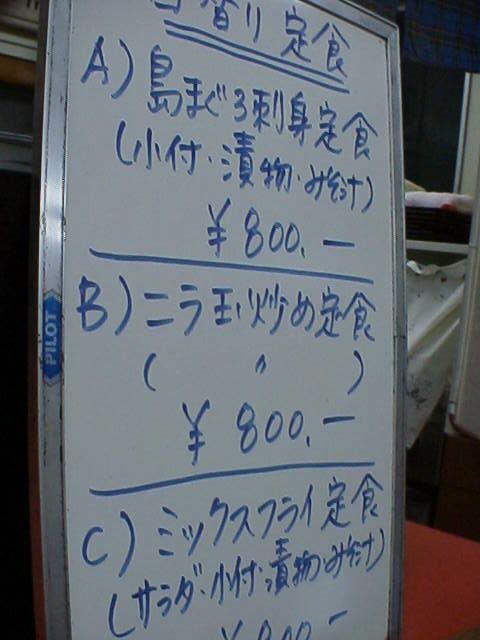 日替り定食
A) 島まぐろ刺身定食
(小付・漬物・みそ汁)
¥800.ー
B) ニラ玉炒め定食
( 〃 )
¥800.ー
C) ミックスフライ定食
(サラダ・小付・漬物・みそ汁)
PILOT